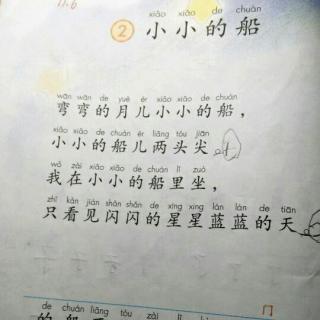 11.6
xiǎo xiǎo de chuán
② 小小的船
wān wān de yuè ér xiǎo xiǎo de chuán
弯弯的月儿小小的船，
xiǎo xiǎo de chuán ér liǎng tóu jiān
小小的船儿两头尖
wǒ zài xiǎo xiǎo de chuán lǐ zuò
我在小小的船里坐，
zhǐ kàn jiàn shǎn shǎn de xīng xing lán lán de tiān
只看见闪闪的星星蓝蓝的天
de chuán liǎng tóu zài lǐ